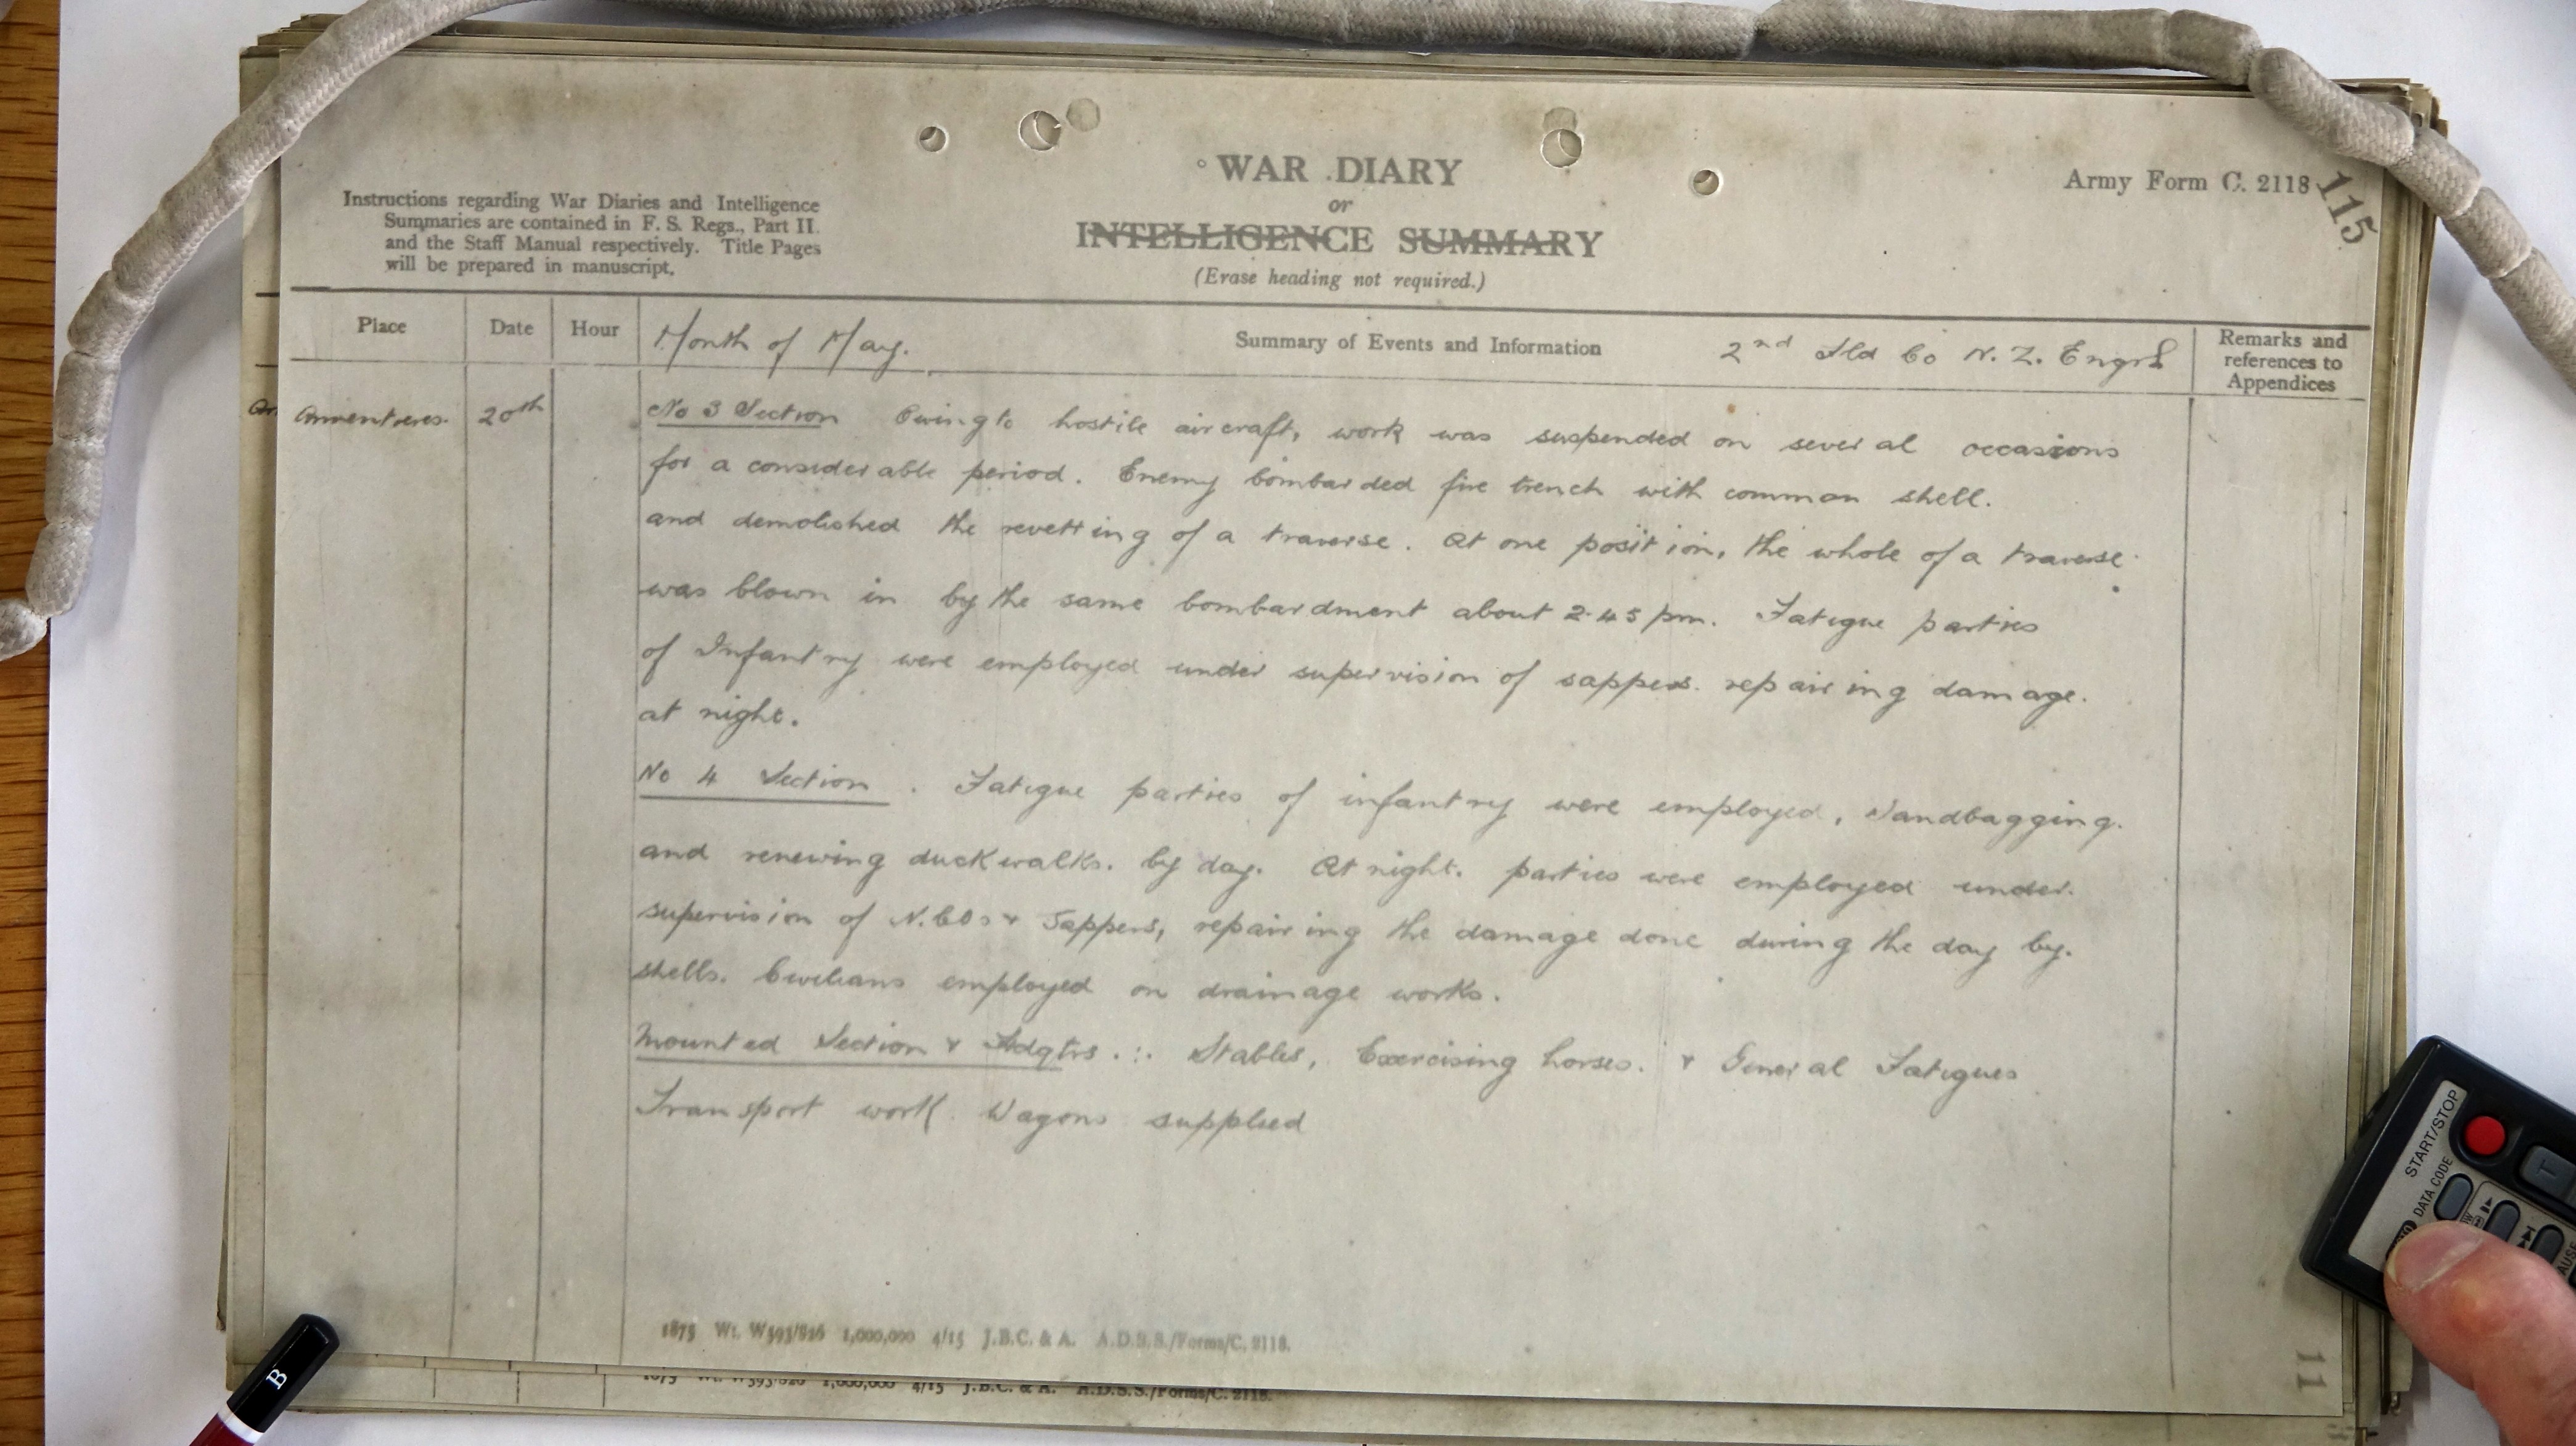 WAR DIARY
or
INTELLIGENCE SUMMARY
(Erase heading not required.)
Army Form C. 2118
115
Instructions regarding War Diaries and Intelligence
Summaries are contained in F. S. Regs., Part II.
and the Staff Manual respectively. Title Pages
will be prepared in manuscript.
Place Date Hour Month of May. Summary of Events and Information 2nd Fld Co N. Z. Engrs
Remarks and
references to
Appendices
Armentieres. 20th No 3 Section Owing to hostile aircraft, work was suspended on several occasions
for a considerable period. Enemy bombarded fire trench with common shell.
and demolished the revetting of a traverse. At one position, the whole of a traverse
was blown in by the same bombardment about 2.45 pm. Fatigue parties
of Infantry were employed under supervision of sappers. repairing damage.
at night.
No 4 Section. Fatigue parties of infantry were employed, Sandbagging.
and renewing duckwalks. by day. At night. parties were employed under.
supervision of N.COs & Sappers, repairing the damage done during the day by.
shells. Civilians employed on drainage works.
Mounted Section & Hdqtrs. :. Stables, Exercising horses. & General Fatigues
Transport work. Wagons supplied
1875 Wt. W593/826 1,000,000 4/15 J.B.C. & A. A.D.S.S./Forms/C. 2118.
1875 Wt. W593/826 1,000,000 4/15 J.B.C. & A. A.D.S.S./Forms/C. 2118.
11
B
START/STOP
DATA CODE